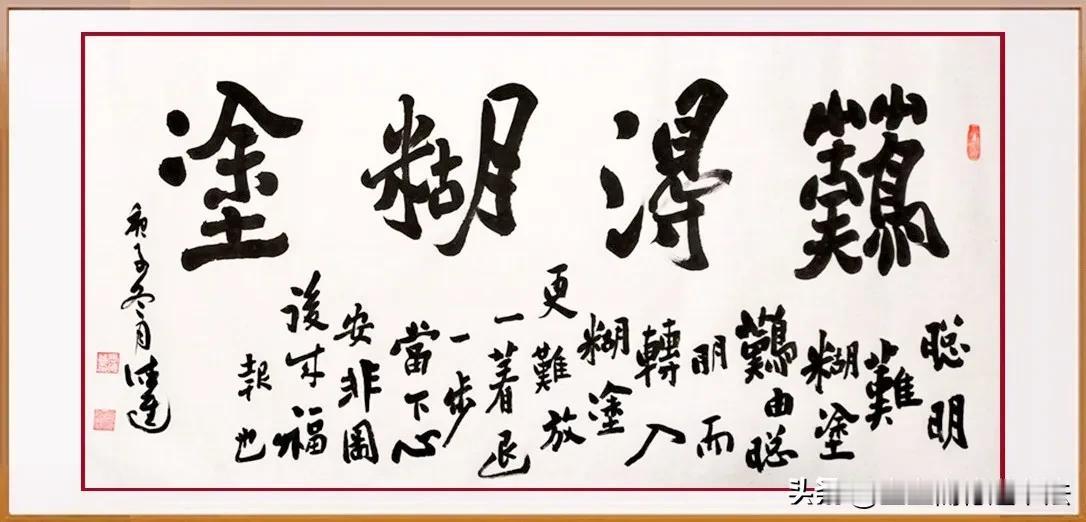 難得糊塗
聰明
難
糊塗
難由聰
明而
轉入
糊塗
更難放
一著退
一步
當下心
安非圖
後来福
報也
庚子冬月
头条